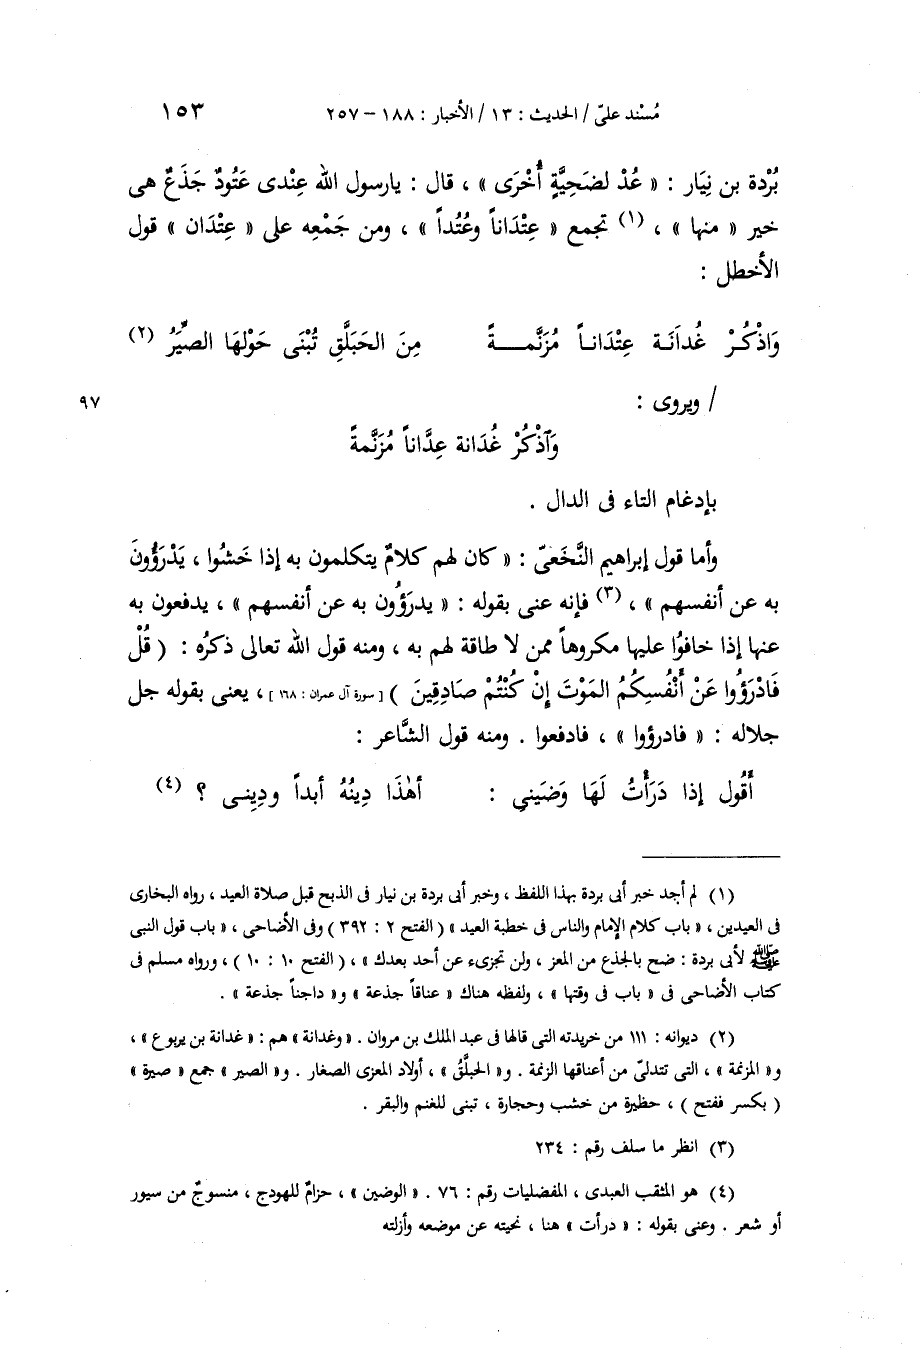 مُسْند علىّ / الحديث : ١٣ / الأخبار : ١٨٨ – ٢٥٧ ١٥٣
بُرْدة بن نِيَار : « عُدْ لضَحِيَّةٍ أُخْرَى » ، قال : يارسول الله عِنْدى عَتُودٌ جَذَعٌ هى
خير « منها » ، (١) تجمع « عِتْدَاناً وعُتُداً » ، ومن جَمْعِه على « عِتْدَان » قول
الأخطل :
وَاذْكُرْ غُدَانَة عِتْدَاناً مُزَنَّمةً مِنَ الحَبَلَّقِ تُبْنَى حَوْلهَا الصِّيَرُ (٢)
/ ويروى : ٩٧
وَآذْكُرْ غُدَانة عِدَّاناً مُزَنَّمةً
بإدغام التاء فى الدال .
وأما قول إبراهيم النَّخَعىّ : « كان لهم كلامٌ يتكلمون به إذا خَشُوا ، يَدْرَؤُونَ
به عن أنفسهم » ، (٣) فإنه عنى بقوله : « يدرَؤُون به عن أنفسهم » ، يدفعون به
عنها إذا خافوُا عليها مكروهاً ممن لا طاقة لهم به ، ومنه قول الله تعالى ذكرُه : ( قُلْ
فَادْرَؤُوا عَنْ أَنْفُسِكُمُ المَوْتَ إِنْ كُنْتُمْ صَادِقِينَ ) [ سورة آل عمران : ١٦٨ ] ، يعنى بقوله جل
جلاله : « فادرؤوا » ، فادفعوا . ومنه قول الشَّاعر :
أَقُول إذا دَرَأْتُ لَهَا وَضَيني : أهٰذَا دِينُهُ أبداً ودِينى ؟ (٤)
(١) لم أجد خبر أبى بردة بهذا اللفظ ، وخبر أبى بردة بن نيار فى الذبح قبل صلاة العيد ، رواه البخارى
فى العيدين ، « باب كلام الإمام والناس فى خطبة العيد » ( الفتح ٢ : ٣٩٢ ) وفى الأضاحى ، « باب قول النبى
ﷺ لأبى بردة : ضح بالجذع من المعز ، ولن تجزىء عن أحد بعدك » ، ( الفتح ١٠ : ١٠ ) ، ورواه مسلم فى
كتاب الأضاحى فى « باب فى وقتها » ، ولفظه هناك « عناقاً جذعة » و« داجناً جذعة » .
(٢) ديوانه : ١١١ من خريدته التى قالها فى عبد الملك بن مروان . « وغدانة » هم : « غدانة بن يربوع » ،
و« المزنمة » ، التى تتدلىّ من أعناقها الزنمة . و« الحبلَّقُ » ، أولاد المعزى الصغار . و« الصير » جمع « صيرة »
( بكسر ففتح ) ، حظيرة من خشب وحجارة ، تبنى للغنم والبقر .
(٣) انظر ما سلف رقم : ٢٣٤
(٤) هو المثقب العبدى ، المفضليات رقم : ٧٦ . « الوضين » ، حزامٌ للهودج ، منسوجٌ من سيور
أو شعر . وعنى بقوله : « درأت » هنا ، نحيته عن موضعه وأزلته